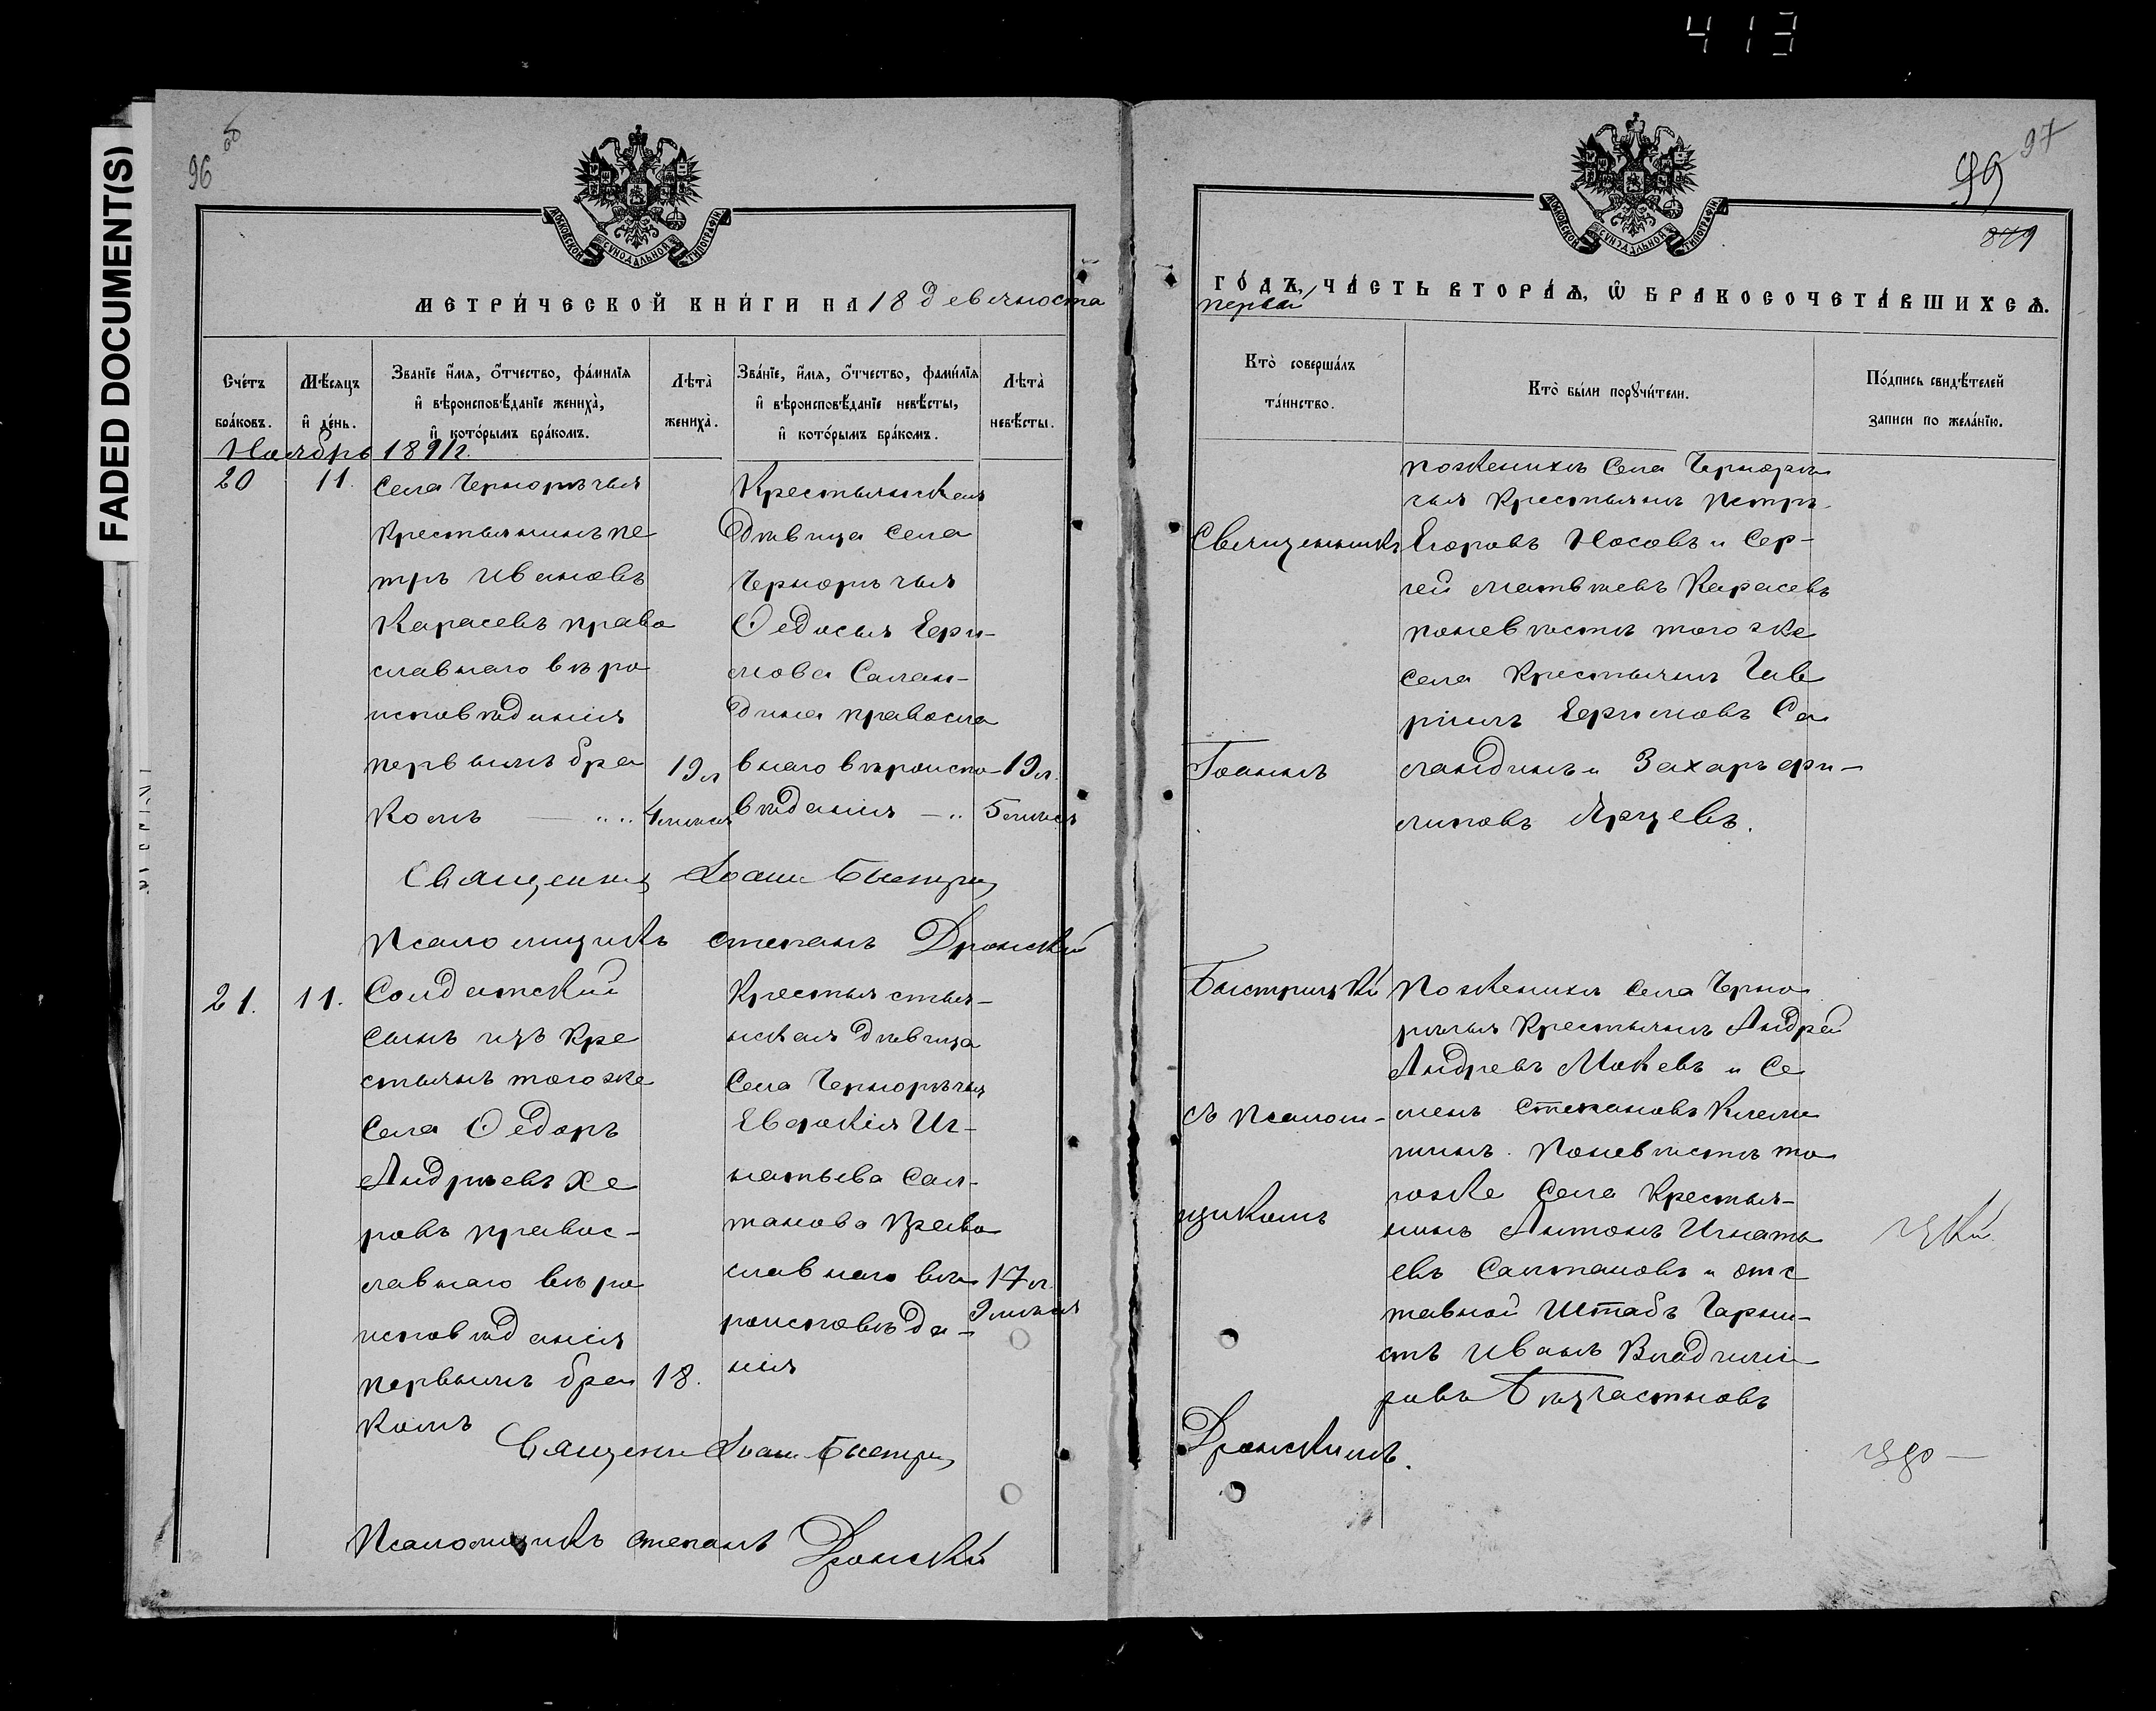 413
FADED DOCUMENT(S)
96 об
МОСКОВСКОЙ СѴНОДАЛЬНОЙ ТИПОГРАФІИ
МЕТРИ́ЧЕСКОЙ КНИ́ГИ НА 18 девяноста
Сче́тъ бра́ковъ.
Мѣ́сяцъ и҆ де́нь.
Зва́нїе и҆́мѧ, ѻ҆́тчество, фамѝлїѧ
и҆ вѣроисповѣ́данїе жениха̀,
и҆ кото́рымъ бра́комъ.
Лѣта̀ жениха̀.
Зва́нїе, и҆́мѧ, ѻ҆́тчество, фамѝлїѧ
и҆ вѣроисповѣ́данїе невѣ́сты,
и҆ кото́рымъ бра́комъ.
Лѣта̀ невѣ́сты.
Ноябрь 1891 г.
20
11.
Села Чернорѣчья
крестьянинъ Пе
тръ Ивановъ
Карасевъ право
славнаго вѣро
исповѣданія
первымъ бра
комъ
19 л
4 мѣсяц
Крестьянская
дѣвица села
Чернорѣчья
Ѳедосья Ефи-
мова Салан-
дина правосла
внаго вѣроиспо
вѣданія
19 л.
5 мѣсяц
Священник Іоанн Быстриц
Псаломщикъ Степанъ Дронскій
21.
11.
Солдатскій
сынъ изъ кре
стьянъ того же
села Ѳедоръ
Андреевъ Хе
ровъ правос-
лавнаго вѣро
исповѣданія
первымъ бра
комъ
18.
Крестья стья-
нская дѣвица
села Чернорѣчья
Евдокія Иг-
натьева Сал-
танова право
славнаго вѣ
роисповѣда-
нія
17 л.
9 мѣсяц
Священн Іоанн Быстриц
Псаломщикъ Степанъ Дронскій
97
99
879
МОСКОВСКОЙ СѴНОДАЛЬНОЙ ТИПОГРАФІИ
ГО́ДЪ, ЧА́СТЬ ВТОРА́Ѧ, Ѡ҆ БРАКОСОЧЕТА́ВШИХСѦ.
первый
Кто̀ соверша́лъ
та́инство.
Кто̀ бы́ли порꙋчи́тели.
По́дпись свидѣ́телей
записи по жела́нїю.
Священникъ
Іоаннъ
Быстрицкі
съ псалом-
щикомъ
Дронскимъ.
по женихѣ села Чернорѣ
чья крестьянъ Петръ
Егоровъ Носовъ и Сер-
гей Матвѣевъ Карасевъ
по невѣстѣ того же
села крестьянъ Гав
ріилъ Ефимовъ Са
ландинъ и Захаръ Фи-
липовъ Ярцевъ.
По женихѣ села Черно
рѣчья крестьянъ Андрей
Андревъ Мокевъ и Се
менъ Степановъ
По невѣстѣ то
гоже села крестья-
нинъ Антонъ Игнать
евъ Салтановъ и отс
тавной Штабъ Горни-
стъ Иванъ Владимі
ровъ Безчастновъ